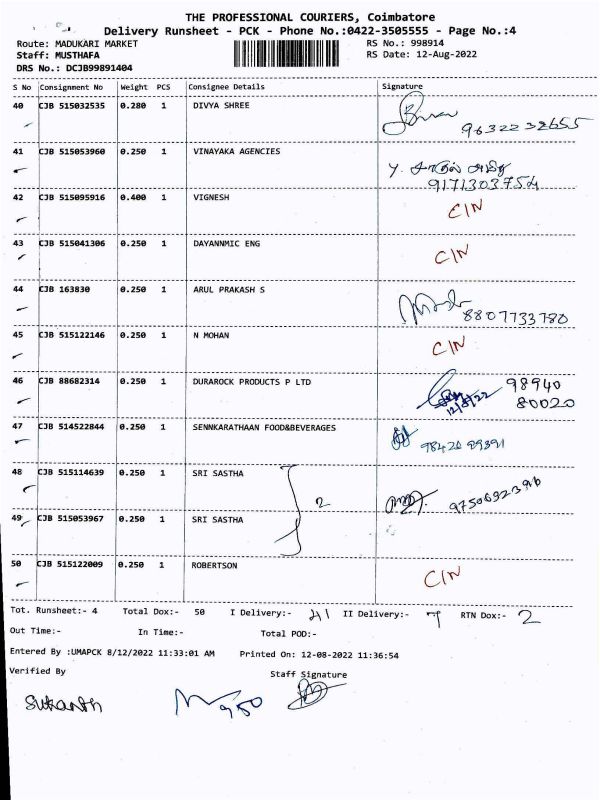 THE PROFESSIONAL COURIERS, Coimbatore
Delivery Runsheet - PCK - Phone No.:0422-3505555 - Page No.:4
Route: MADUKARI MARKET RS No.: 998914
Staff: MUSTHAFA RS Date: 12-Aug-2022
DRS No.: DCJB99891404
S No Consignment No Weight PCS Consignee Details Signature
40 CJB 515032535 0.280 1 DIVYA SHREE
9632232655
41 CJB 515053960 0.250 1 VINAYAKA AGENCIES
9171303754
42 CJB 515095916 0.400 1 VIGNESH C/N
43 CJB 515041306 0.250 1 DAYANNMIC ENG C/N
44 CJB 163830 0.250 1 ARUL PRAKASH S
8807733780
45 CJB 515122146 0.250 1 N MOHAN C/N
46 CJB 88682314 0.250 1 DURAROCK PRODUCTS P LTD 98940
12/8/22 80020
47 CJB 514522844 0.250 1 SENNKARATHAAN FOOD&BEVERAGES
98420 89391
48 CJB 515114639 0.250 1 SRI SASTHA
2 9750692396
49 CJB 515053967 0.250 1 SRI SASTHA
50 CJB 515122009 0.250 1 ROBERTSON C/N
Tot. Runsheet:- 4 Total Dox:- 50 I Delivery:- 41 II Delivery:- 7 RTN Dox:- 2
Out Time:- In Time:- Total POD:-
Entered By :UMAPCK 8/12/2022 11:33:01 AM Printed On: 12-08-2022 11:36:54
Verified By Staff Signature
Sukanth 950